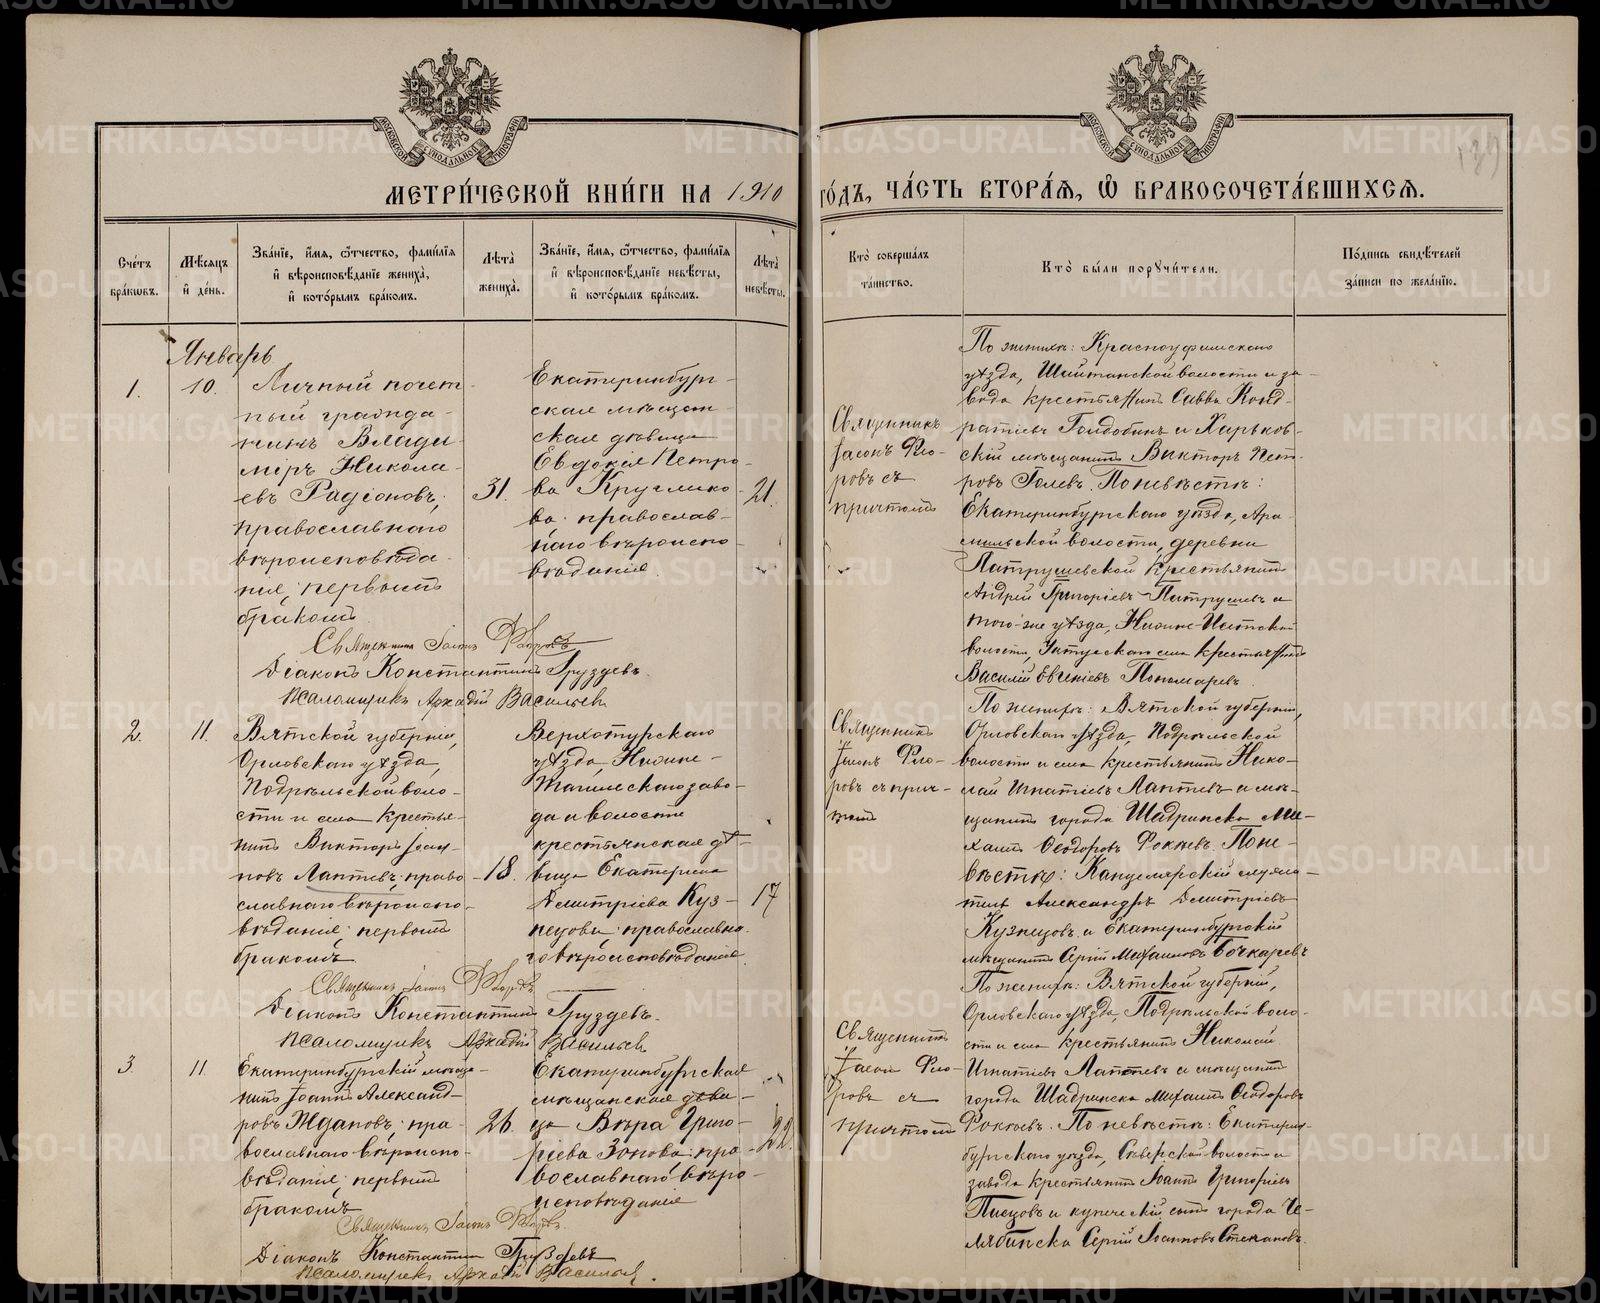 МЕТРИ́ЧЕСКОЙ КНИ́ГИ НА 1910
ГО́ДЪ, ЧА́СТЬ ВТОРА́Я, Ѽ БРАКОСОЧЕТА́ВШИХСЯ.
Счетъ бра́кѡвъ.
Мѣсяцъ и҆ де́нь.
Зва́нїе, и҆́мя, ѻ҆́тчество, фами́лїя и҆ вѣроисповѣ́данїе жениха̀, и҆ кото́рымъ бра́комъ.
Лѣта̀ жениха̀.
Зва́нїе, и҆́мя, ѻ҆́тчество, фами́лїя и҆ вѣроисповѣ́данїе невѣ́сты, и҆ кото́рымъ бра́комъ.
Лѣта̀ невѣ́сты.
Кто̀ соверша́лъ та́инство.
Кто̀ бы́ли порꙋчи́тели.
По́дпись свидѣ́телей за́писи по жела́нїю.
Январь
1.
10.
Личный почет-
ный гражда-
нинъ Влади-
міръ Никола-
евъ Радіоновъ;
православнаго
вѣроисповѣда-
нія; первымъ
бракомъ.
31.
Екатеринбург-
ская мѣщан-
ская дѣвица
Евдокія Петро-
ва Кругляко-
ва православ-
наго вѣроиспо-
вѣданія.
21.
Священникъ
Іасонъ Фло-
ровъ съ
причтомъ
По женихѣ: Красноуфимскаго
уѣзда, Шайтанской волости и за-
вода крестьянинъ Савва Конд-
ратіевъ Голдобинъ и Харьков-
скій мѣщанинъ Викторъ Пет-
ровъ Голевъ. По невѣстѣ:
Екатеринбургскаго уѣзда, Ара-
мильской волости, деревни
Патрушевской крестьянинъ
Андрей Григоріевъ Патрушевъ и
того-же уѣзда, Нижне-Исетской
волости, Уктусскаго села крестьянинъ
Василій Евгеніевъ Пономаревъ.
Священникъ Іасонъ Флоровъ
Діаконъ Константинъ Груздевъ.
Псаломщикъ Аркадій Васильевъ
2.
11.
Вятской губерніи,
Орловскаго уѣзда,
Подрѣльской воло-
сти и села крестья-
нинъ Викторъ Іоан-
новъ Лаптевъ; право-
славнаго вѣроиспо-
вѣданія; первымъ
бракомъ
18.
Верхотурскаго
уѣзда, Нижне-
Тагильскаго заво-
да и волости
крестьянская дѣ-
вица Екатерина
Димитріева Куз-
нецова; православна-
го вѣроисповѣданія.
17
Священникъ
Іасонъ Фло-
ровъ съ прич-
томъ
По женихѣ: Вятской губерніи,
Орловскаго уѣзда, Подрѣльской
волости и села крестьянинъ Нико-
лай Игнатіевъ Лаптевъ и мѣ-
щанинъ города Шадринска Ми-
хаилъ Ѳеодоровъ Фокіевъ. По не-
вѣстѣ: Канцелярскій служи-
тель Александръ Димитріевъ
Кузнецовъ и Екатеринбургскій
мѣщанинъ Сергій Михаиловъ Бочкаревъ
Священникъ Іасонъ Флоровъ
Діаконъ Константинъ Груздевъ.
Псаломщикъ Аркадій Васильевъ
3.
11.
Екатеринбургскій мѣща-
нинъ Іоаннъ Александ-
ровъ Ждановъ; пра-
вославнаго вѣроиспо-
вѣданія; первымъ
бракомъ
26.
Екатеринбургская
мѣщанская дѣви-
ца Вѣра Григо-
ріева Зонова; пра-
вославнаго вѣро-
исповѣданія
22.
Священникъ
Іасонъ Фло-
ровъ съ
причтомъ
По женихѣ: Вятской губерніи,
Орловскаго уѣзда, Подрѣльской воло-
сти и села крестьянинъ Николай
Игнатіевъ Лаптевъ и мѣщанинъ
города Шадринска Михаилъ Ѳеодоровъ
Фокіевъ. По невѣстѣ: Екатерин-
бургскаго уѣзда, Сысертской волости и
завода крестьянинъ Іоаннъ Григоріевъ
Писцовъ и купеческій сынъ города Че-
лябинска Сергій Іоанновъ Степановъ.
Священникъ Іасонъ Флоровъ.
Діаконъ Константинъ Груздевъ
Псаломщикъ Аркадій Васильевъ.
METRIKI.GASO-URAL.RU